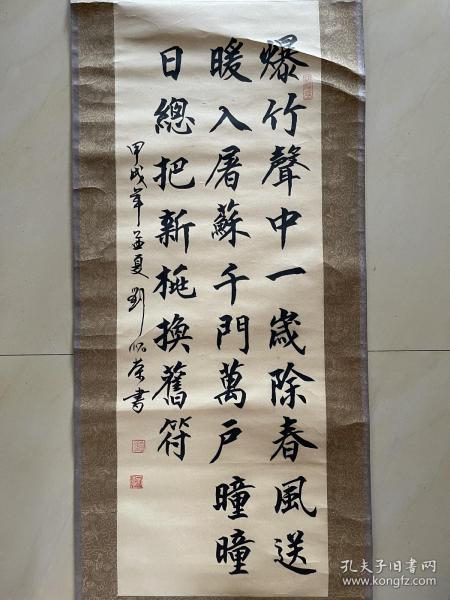 爆竹聲中一歲除春風送
暖入屠蘇千門萬戶曈曈
日總把新桃換舊符
甲戌年孟夏劉炳榮書
孔夫子旧书网
www.kongfz.com